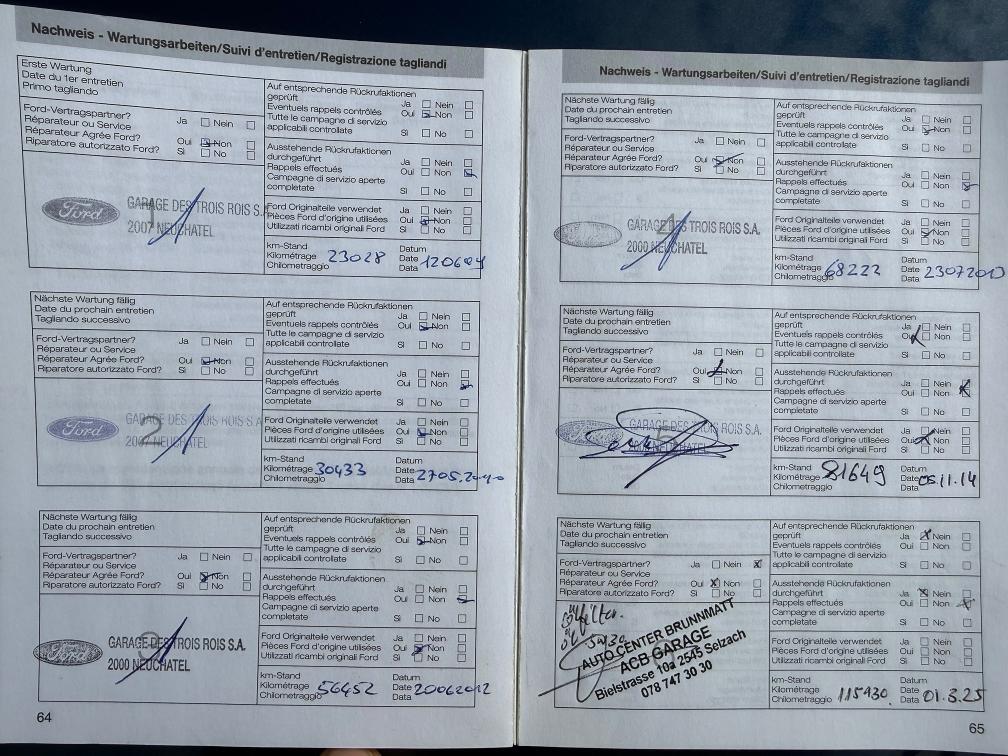 Nachweis - Wartungsarbeiten/Suivi d'entretien/Registrazione tagliandi
Erste Wartung
Date du 1er entretien
Primo tagliando
Ford-Vertragspartner?
Réparateur ou Service
Réparateur Agrée Ford?
Riparatore autorizzato Ford?
Ja Nein
Oui Non
Sì No
Ford
GARAGE DES TROIS ROIS S.A.
1
NEUCHATEL
Auf entsprechende Rückrufaktionen
geprüft
Ja Nein
Eventuels rappels contrôlés
Oui Non
Tutte le campagne di servizio
applicabili controllate
Sì No
Ausstehende Rückrufaktionen
durchgeführt
Ja Nein
Rappels effectués
Oui Non
Campagne di servizio aperte
completate
Sì No
Ford Originalteile verwendet
Ja Nein
Pièces Ford d'origine utilisées
Oui Non
Utilizzati ricambi originali Ford
Sì No
km-Stand
Kilométrage 23028
Chilometraggio
Datum
Date
Data
Nächste Wartung fällig
Date du prochain entretien
Tagliando successivo
Ford-Vertragspartner?
Réparateur ou Service
Réparateur Agrée Ford?
Riparatore autorizzato Ford?
Ja Nein
Oui Non
Sì No
Ford
GARAGE DES TROIS ROIS S.A.
2
NEUCHATEL
Auf entsprechende Rückrufaktionen
geprüft
Ja Nein
Eventuels rappels contrôlés
Oui Non
Tutte le campagne di servizio
applicabili controllate
Sì No
Ausstehende Rückrufaktionen
durchgeführt
Ja Nein
Rappels effectués
Oui Non
Campagne di servizio aperte
completate
Sì No
Ford Originalteile verwendet
Ja Nein
Pièces Ford d'origine utilisées
Oui Non
Utilizzati ricambi originali Ford
Sì No
km-Stand
Kilométrage 30433
Chilometraggio
Datum
Date
Data
Nächste Wartung fällig
Date du prochain entretien
Tagliando successivo
Ford-Vertragspartner?
Réparateur ou Service
Réparateur Agrée Ford?
Riparatore autorizzato Ford?
Ja Nein
Oui Non
Sì No
Ford
GARAGE DES TROIS ROIS S.A.
3
2000 NEUCHATEL
Auf entsprechende Rückrufaktionen
geprüft
Ja Nein
Eventuels rappels contrôlés
Oui Non
Tutte le campagne di servizio
applicabili controllate
Sì No
Ausstehende Rückrufaktionen
durchgeführt
Ja Nein
Rappels effectués
Oui Non
Campagne di servizio aperte
completate
Sì No
Ford Originalteile verwendet
Ja Nein
Pièces Ford d'origine utilisées
Oui Non
Utilizzati ricambi originali Ford
Sì No
km-Stand
Kilométrage 56452
Chilometraggio
Datum
Date 20062012
Data
64
Nachweis - Wartungsarbeiten/Suivi d'entretien/Registrazione tagliandi
Nächste Wartung fällig
Date du prochain entretien
Tagliando successivo
Ford-Vertragspartner?
Réparateur ou Service
Réparateur Agrée Ford?
Riparatore autorizzato Ford?
Ja Nein
Oui Non
Sì No
GARAGE DES TROIS ROIS S.A.
4
2000 NEUCHATEL
Auf entsprechende Rückrufaktionen
geprüft
Ja Nein
Eventuels rappels contrôlés
Oui Non
Tutte le campagne di servizio
applicabili controllate
Sì No
Ausstehende Rückrufaktionen
durchgeführt
Ja Nein
Rappels effectués
Oui Non
Campagne di servizio aperte
completate
Sì No
Ford Originalteile verwendet
Ja Nein
Pièces Ford d'origine utilisées
Oui Non
Utilizzati ricambi originali Ford
Sì No
km-Stand
Kilométrage 68222
Chilometraggio
Datum
Date
Data
Nächste Wartung fällig
Date du prochain entretien
Tagliando successivo
Ford-Vertragspartner?
Réparateur ou Service
Réparateur Agrée Ford?
Riparatore autorizzato Ford?
Ja Nein
Oui Non
Sì No
GARAGE DES TROIS ROIS S.A.
5
NEUCHATEL
Auf entsprechende Rückrufaktionen
geprüft
Ja Nein
Eventuels rappels contrôlés
Oui Non
Tutte le campagne di servizio
applicabili controllate
Sì No
Ausstehende Rückrufaktionen
durchgeführt
Ja Nein
Rappels effectués
Oui Non
Campagne di servizio aperte
completate
Sì No
Ford Originalteile verwendet
Ja Nein
Pièces Ford d'origine utilisées
Oui Non
Utilizzati ricambi originali Ford
Sì No
km-Stand
Kilométrage 81649
Chilometraggio
Datum
Date 05.11.14
Data
Nächste Wartung fällig
Date du prochain entretien
Tagliando successivo
Ford-Vertragspartner?
Réparateur ou Service
Réparateur Agrée Ford?
Riparatore autorizzato Ford?
Ja Nein
Oui Non
Sì No
5w30
AUTO CENTER BRUNNMATT
ACB GARAGE
Bielstrasse 10a 2545 Selzach
078 747 30 30
Auf entsprechende Rückrufaktionen
geprüft
Ja Nein
Eventuels rappels contrôlés
Oui Non
Tutte le campagne di servizio
applicabili controllate
Sì No
Ausstehende Rückrufaktionen
durchgeführt
Ja Nein
Rappels effectués
Oui Non
Campagne di servizio aperte
completate
Sì No
Ford Originalteile verwendet
Ja Nein
Pièces Ford d'origine utilisées
Oui Non
Utilizzati ricambi originali Ford
Sì No
km-Stand
Kilométrage 115930
Chilometraggio
Datum
Date 01.3.25
Data
65